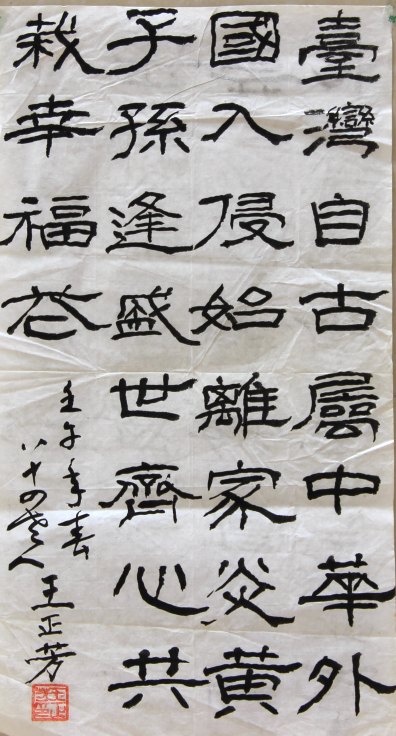 臺灣自古屬中華外
國入侵始離家炎黃
子孫逢盛世齊心共
栽幸福花
壬午年春
八十四老人王正芳